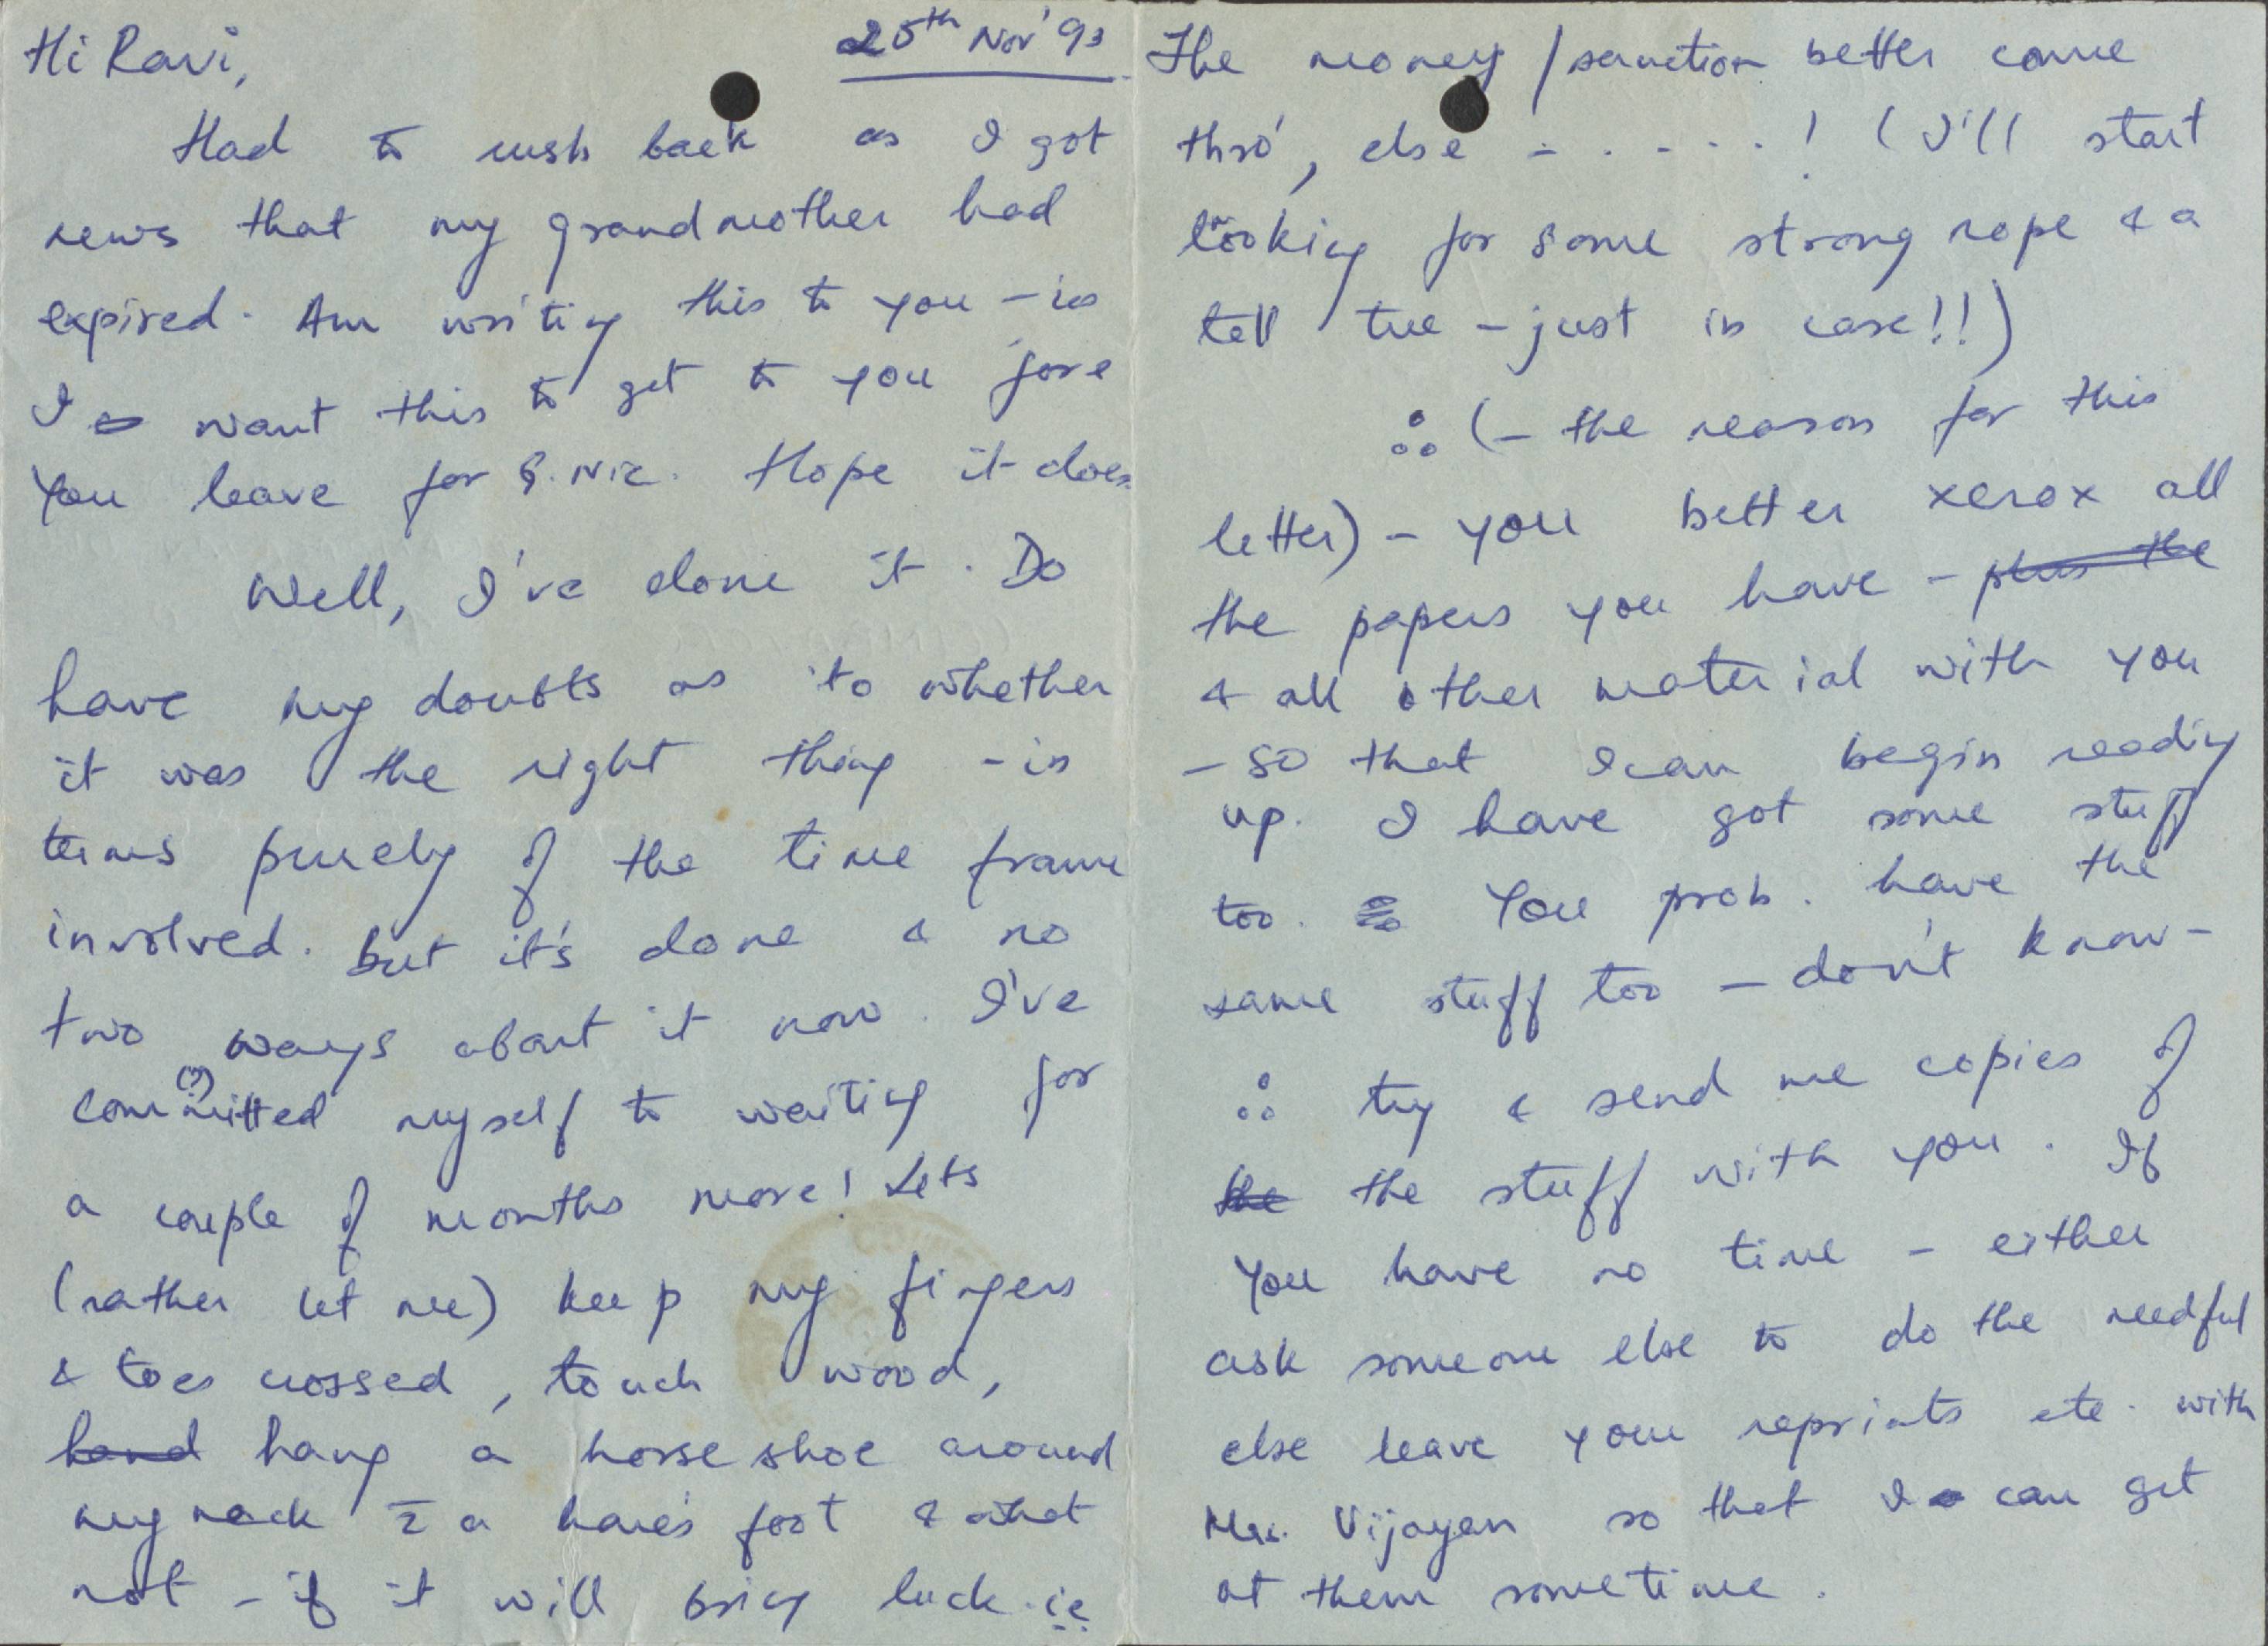 Hi Ravi,
25th Nov' 93
Had to rush back as I got
news that my grandmother had
expired. Am writing this to you - as
I want this to get to you 'fore
you leave for S. Nic. Hope it does
Well, I've done it. Do
have my doubts as to whether
it was the right thing - in
terms purely of the time frame
involved. but it's done & no
two ways about it now. I've
committed (?) myself to waiting for
a couple of months more! Lets
(rather let me) keep my fingers
& toes crossed, touch wood,
hand hang a horse shoe around
my neck c̄ a hare's foot & what
not - if it will bring luck. ie
The money / sanction better come
thro', else - . - - . . ! (I'll start
looking for some strong rope & a
tall tree - just in case!!)
∴ (- the reason for this
letter) - you better xerox all
the papers you have - plus the
& all other material with you
- so that I can begin reading
up. I have got some stuff
too. You prob. have the
same stuff too - don't know -
∴ try & send me copies of
the the stuff with you. If
you have no time - either
ask someone else to do the needful
else leave your reprints etc. with
Mrs. Vijayan so that I can get
at them sometime.